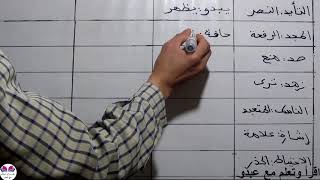 التأييد: النصر يبدو: يظهر
المجد: الرفعة حافة:
صد: منع
زهد: ترك
الناسك: المتعبد
إشارة: علامة
الاحتياط: الحذر
اقرأ وتعلم مع عبدو